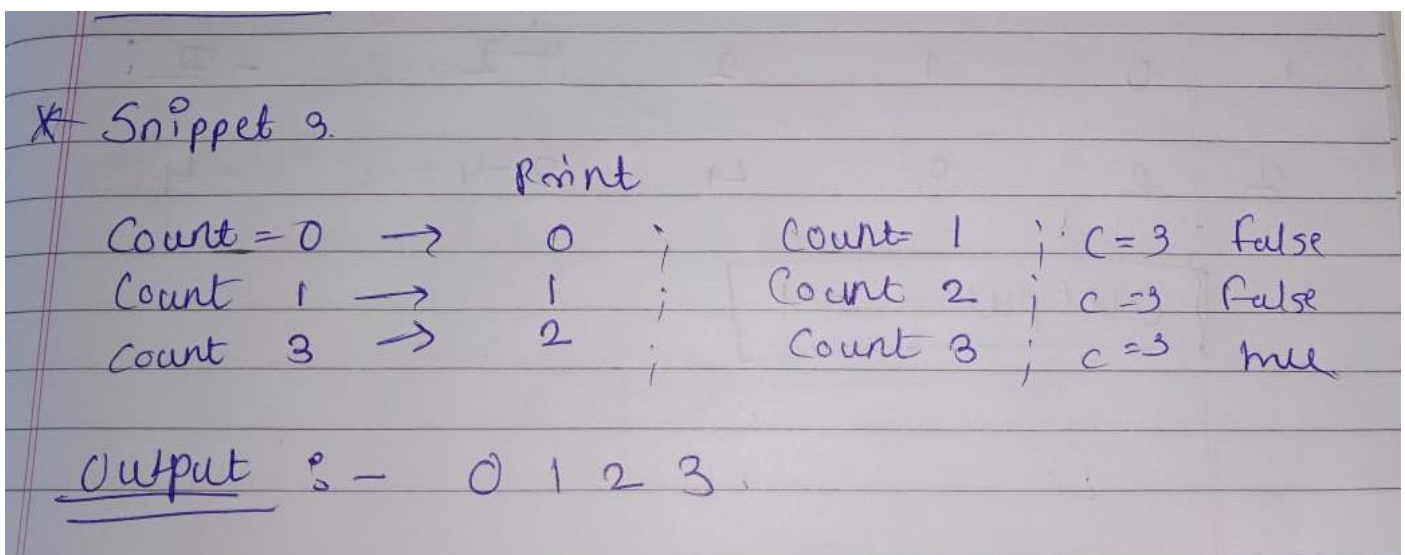 * Snippet 9.
Print
Count = 0 → 0 ; Count = 1 ; C = 3 false
Count 1 → 1 ; Count 2 ; C = 3 false
Count 3 → 2 ; Count 3 ; C = 3 true
Output :- 0 1 2 3.